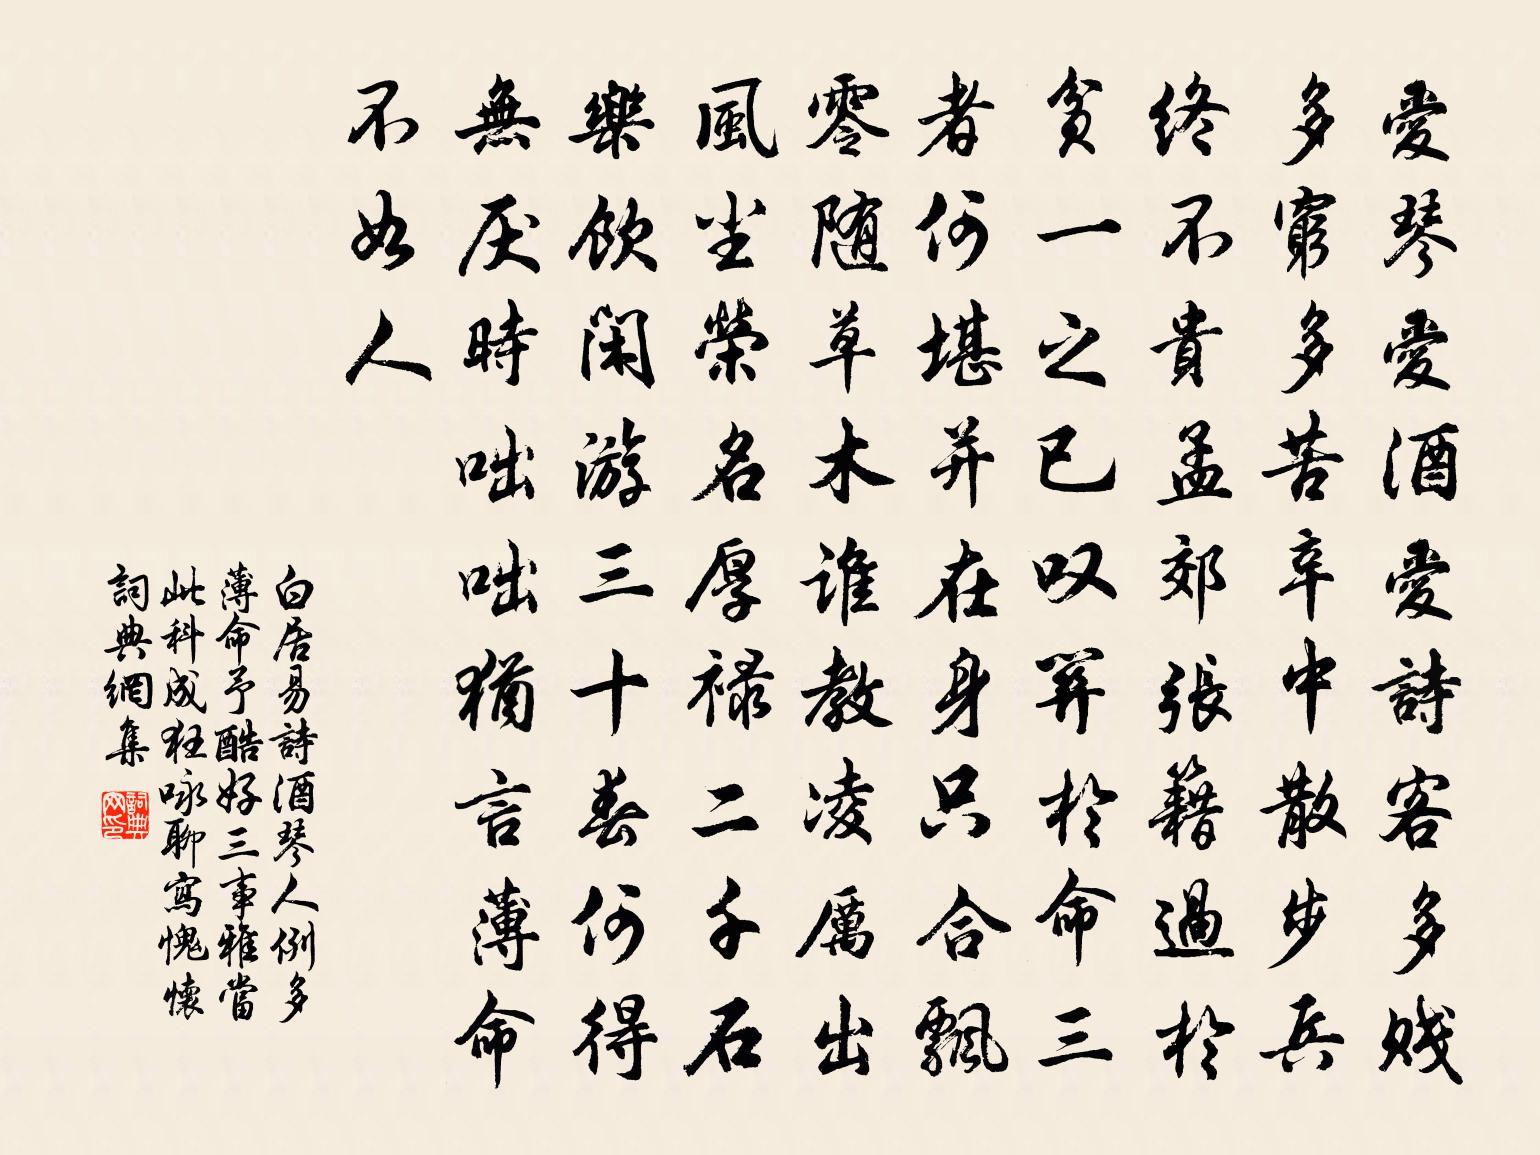 愛琴愛酒愛詩客多賤
多窮多苦辛中散步兵
終不貴孟郊張籍過於
貧一之已叹筭於命三
者何堪并在身只合飄
零随草木谁教凌厲出
風尘榮名厚禄二千石
樂飲閑游三十春何得
無厌時咄咄猶言薄命
不如人
白居易詩酒琴人例多
薄命予酷好三事雅當
此科成狂咏聊寫愧懷
詞典網集
詞典网印